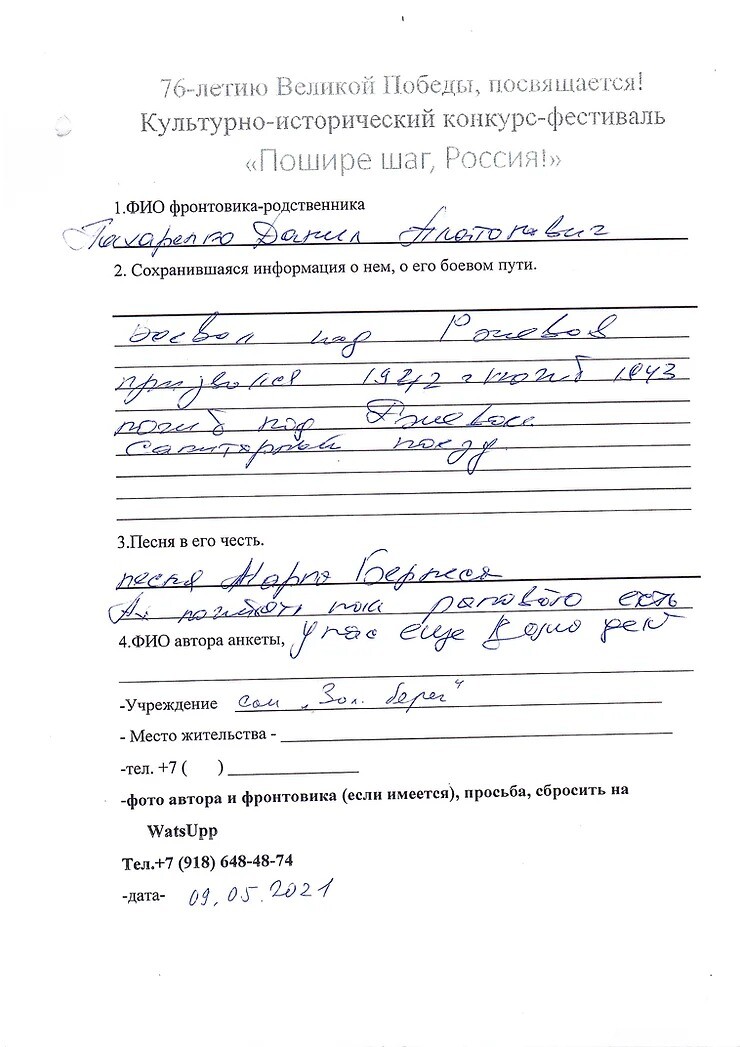 76-летию Великой Победы, посвящается!
Культурно-исторический конкурс-фестиваль
«Пошире шаг, Россия!»
1.ФИО фронтовика-родственника
Данил
2. Сохранившаяся информация о нем, о его боевом пути.
воевал под Ржевом
призвался 1942 г погиб 1943
погиб под Ржевом
Санитарный поезд
3.Песня в его честь.
песня Марка Бернеса
4.ФИО автора анкеты, у нас еще дел
-Учреждение сан „Зол. берег“
- Место жительства -
-тел. +7 ( )
-фото автора и фронтовика (если имеется), просьба, сбросить на
WatsUpp
Тел.+7 (918) 648-48-74
-дата- 09.05.2021